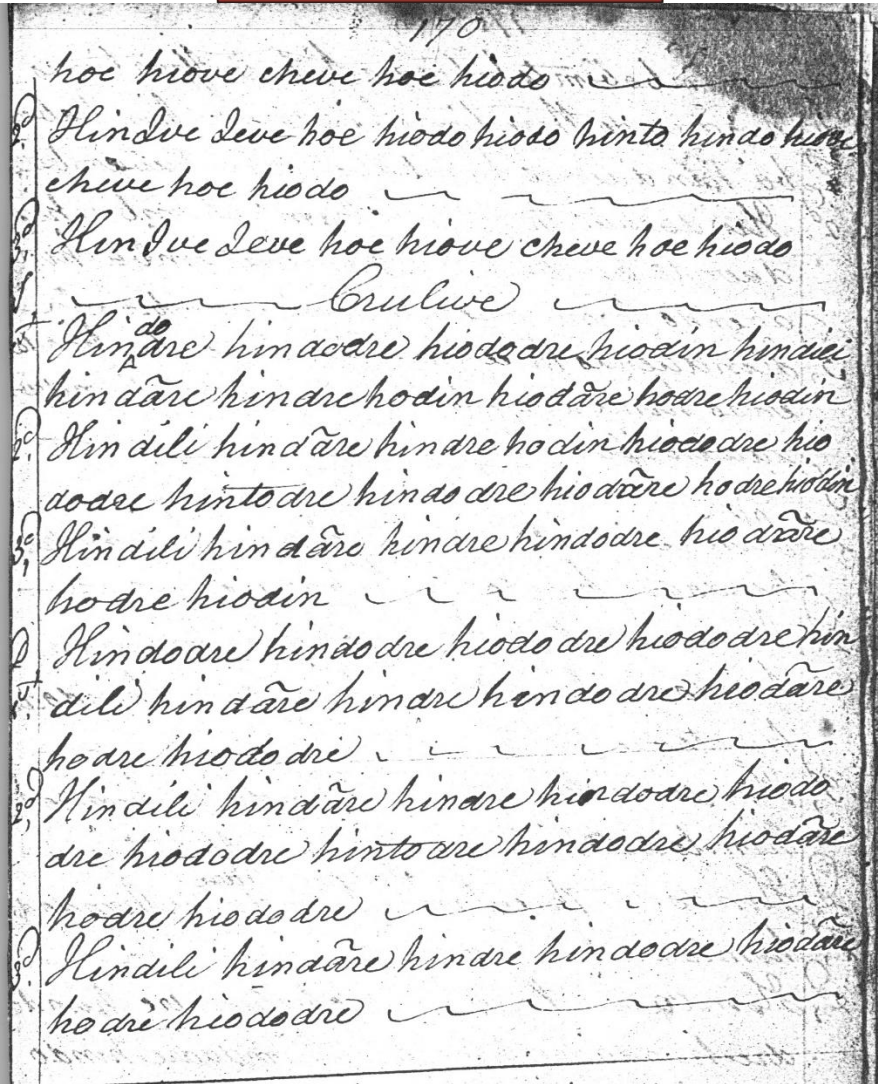 170
hoe hiove cheve hoe hiodo
2d Hindve deve hoe hiodo hiodo hinto hindo hiove
cheve hoe hiodo
3d Hindve deve hoe hiove cheve hoe hiodo
Crulive
Hindodre hindodre hiododre hiodin hindili
hindāre hindre hodin hiodāre hodre hiodin
2d Hindili hindāre hindre hodin hiododre hio
dodre hintodre hindodre hiodāre hodre hiodin
3d Hindili hindāre hindre hindodre hiodrāre
hodre hiodin
Hindodre hindodre hiododre hiododre hin
dili hindāre hindre hindodre hiodāre
hodre hiododre
2d Hindili hindāre hindre hindodre hiodo
dre hiododre hintodre hindodre hiodāre
hodre hiododre
3d Hindili hindāre hindre hindodre hiodāre
hodre hiododre